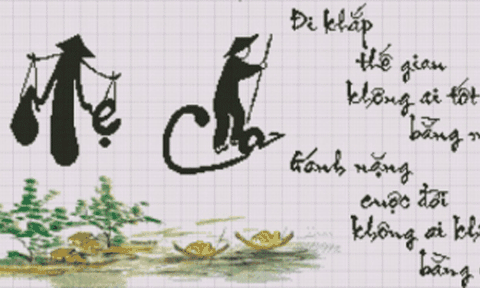 Mẹ Cha
Đi khắp
thế gian
không ai tốt
bằng
Gánh nặng
cuộc đời
không ai
bằng